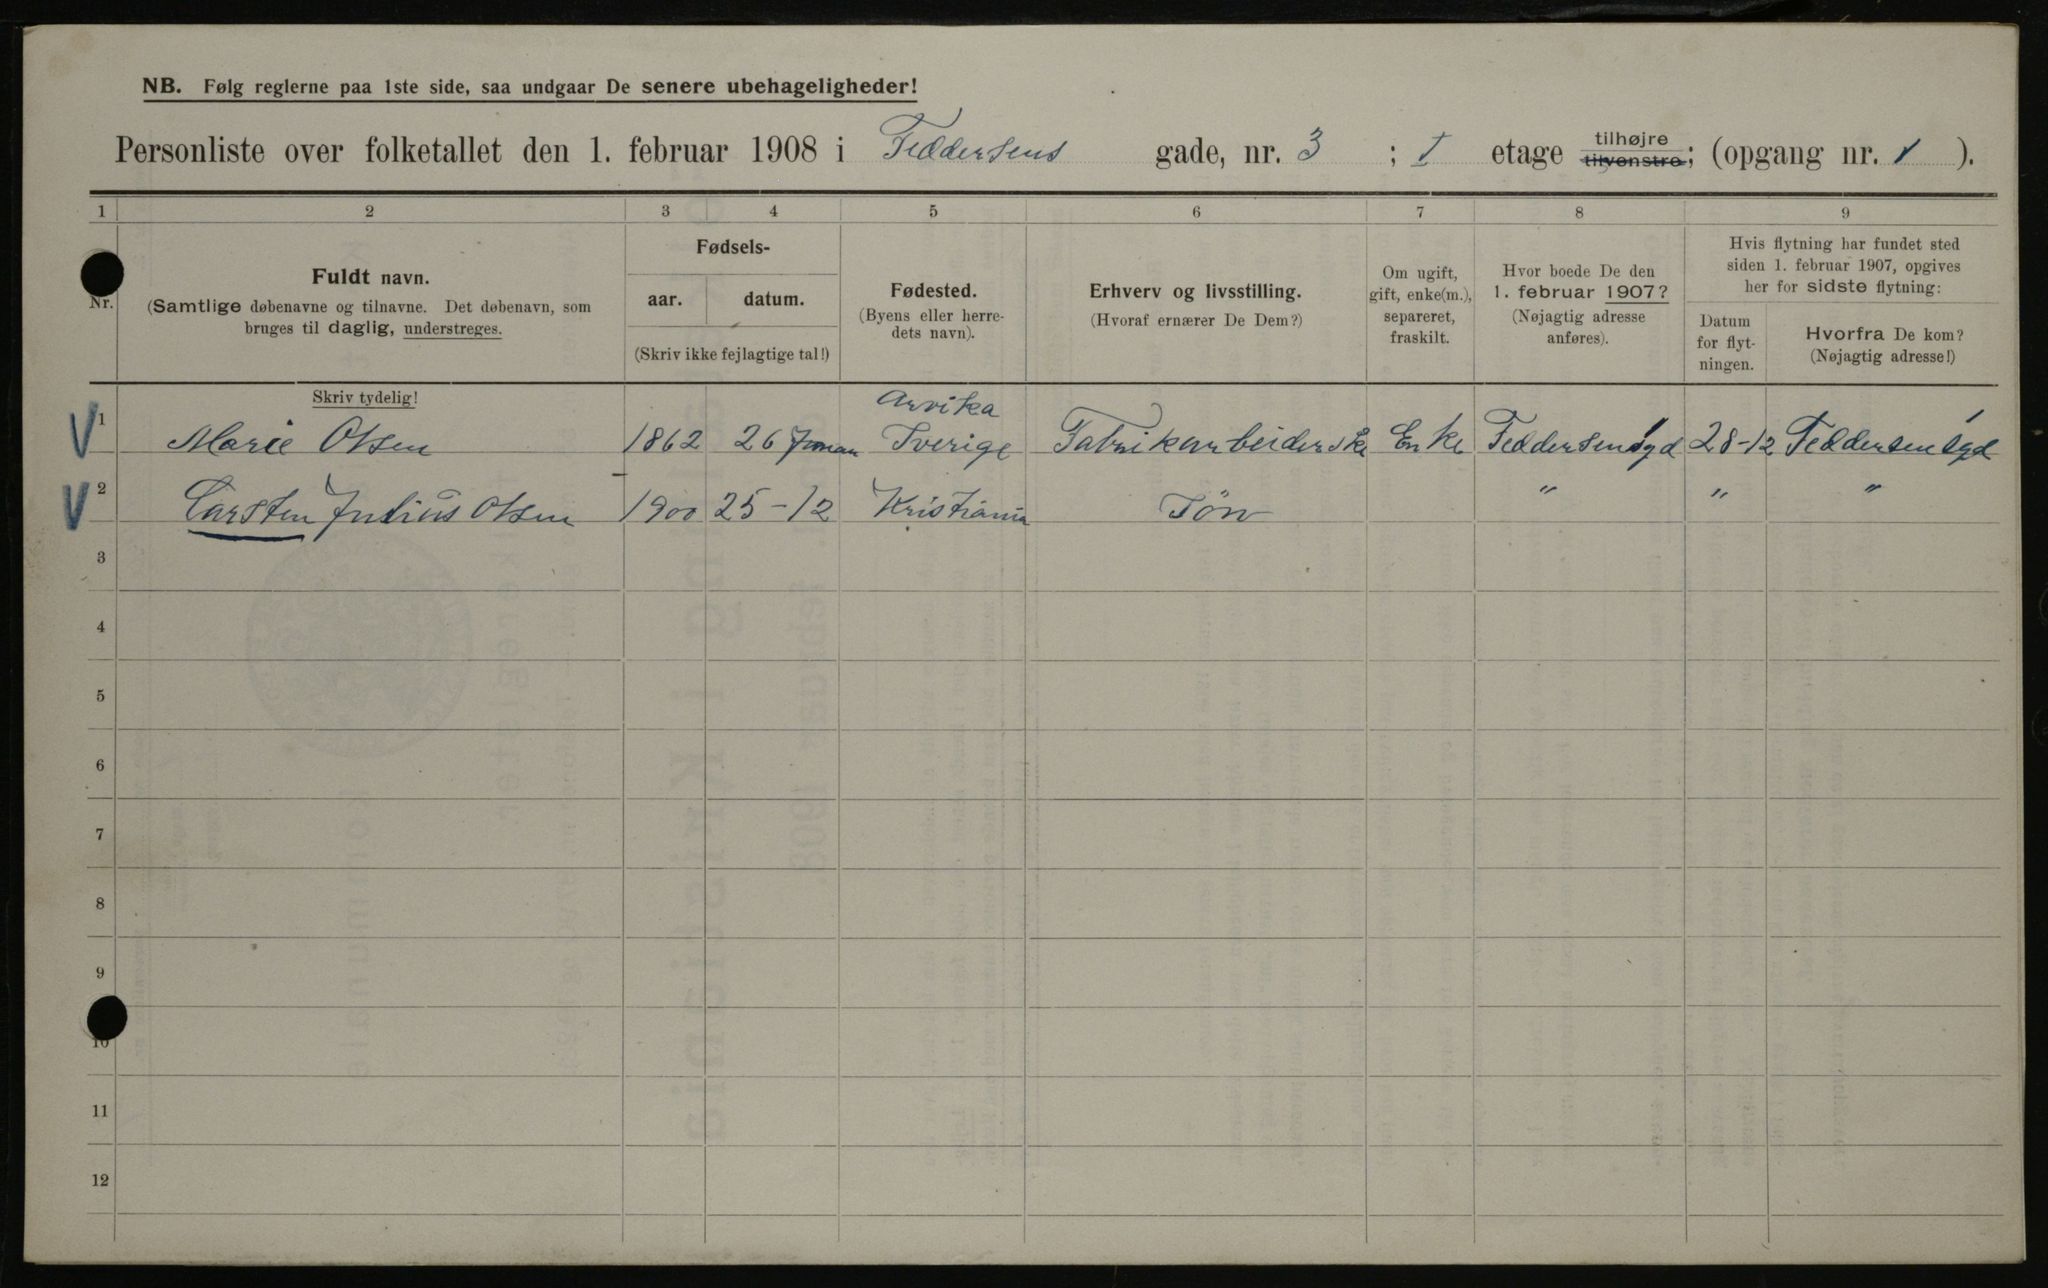 NB. Følg reglerne paa 1ste side, saa undgaar De senere ubehageligheder!
Personliste over folketallet den 1. februar 1908 i Feddersens gade, nr. 3 ; I etage tilhøjre tilvenstre; (opgang nr. 1 ).
1 2 3 4 5 6 7 8 9
Nr.
Fuldt navn.
(Samtlige døbenavne og tilnavne. Det døbenavn, som
bruges til daglig, understreges.
Skriv tydelig!
Fødsels-
aar. datum.
(Skriv ikke fejlagtige tal!)
Fødested.
(Byens eller herre-
dets navn).
Erhverv og livsstilling.
(Hvoraf ernærer De Dem?)
Om ugift,
gift, enke(m.),
separeret,
fraskilt.
Hvor boede De den
1. februar 1907?
(Nøjagtig adresse
anføres).
Hvis flytning har fundet sted
siden 1. februar 1907, opgives
her for sidste flytning:
Datum
for flyt-
ningen.
Hvorfra De kom?
(Nøjagtig adresse!)
Arvika
V 1 Marie Olsen 1862 26 Sverige Fabrikarbeiderske Enke Feddersensgd 28-12 Feddersensgd 1
V 2 Carsten Julius Olsen 1900 25-12 Kristiania Sön " " "
3
4
5
6
7
8
9
10
11
12